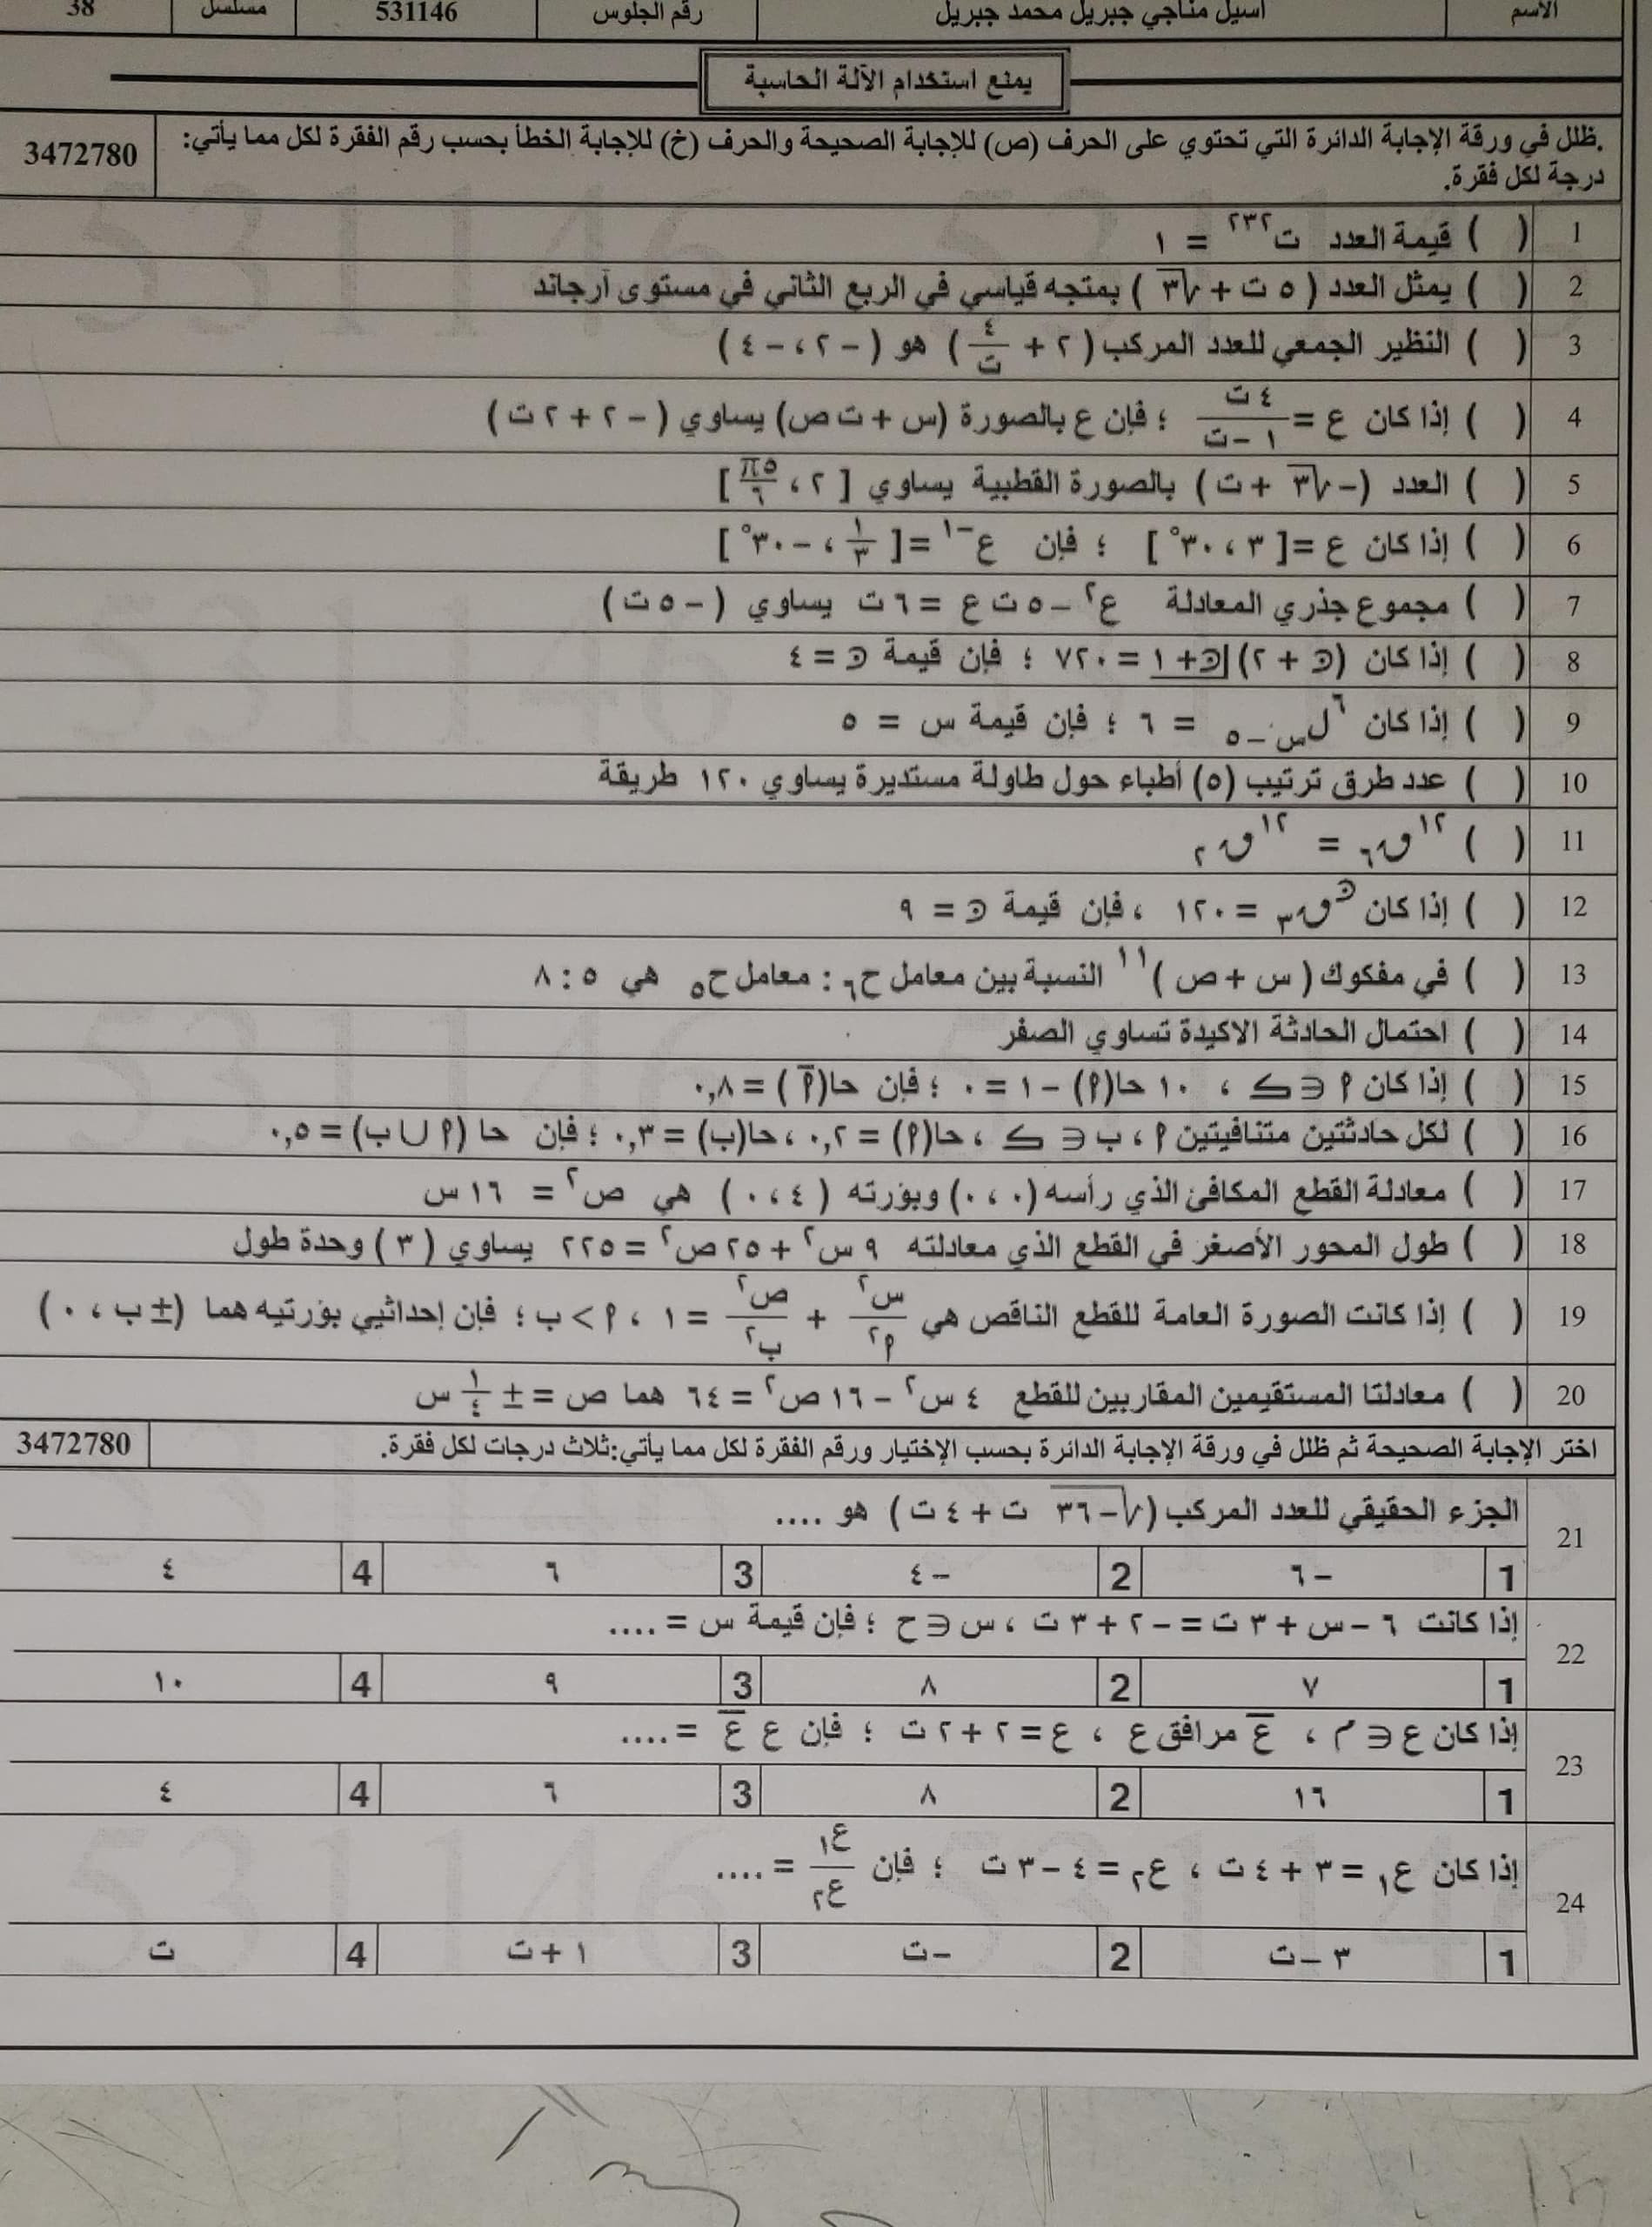 الاسم اسيل مناجي جبريل محمد جبريل رقم الجلوس 531146 مسلسل 38
يمنع استخدام الآلة الحاسبة
.ظلل في ورقة الإجابة الدائرة التي تحتوي على الحرف (ص) للإجابة الصحيحة والحرف (خ) للإجابة الخطأ بحسب رقم الفقرة لكل مما يأتي: 3472780
درجة لكل فقرة.
1 ( ) قيمة العدد ت^٢٣٢ = ١
2 ( ) يمثل العدد (٥ ت + √٣) بمتجه قياسي في الربع الثاني في مستوى آرجاند
3 ( ) النظير الجمعي للعدد المركب (٢ + ٤/ت) هو (-٢، -٤)
4 ( ) إذا كان ع = ٤ ت/(١ - ت) ؛ فإن ع بالصورة (س + ت ص) يساوي (-٢ + ٢ ت)
5 ( ) العدد (-√٣ + ت) بالصورة القطبية يساوي [٢، ٥π/٦]
6 ( ) إذا كان ع = [٣، ٣٠°] ؛ فإن ع^-١ = [١/٣، -٣٠°]
7 ( ) مجموع جذري المعادلة ع^٢ - ٥ ت ع = ٦ ت يساوي (-٥ ت)
8 ( ) إذا كان (ن + ٢) |ن + ١ = ٧٢٠ ؛ فإن قيمة ن = ٤
9 ( ) إذا كان ^٦ل_س-٥ = ٦ ؛ فإن قيمة س = ٥
10 ( ) عدد طرق ترتيب (٥) أطباء حول طاولة مستديرة يساوي ١٢٠ طريقة
11 ( ) ^١٢ق_٦ = ^١٢ق_٢
12 ( ) إذا كان ^نق_٣ = ١٢٠ ، فإن قيمة ن = ٩
13 ( ) في مفكوك (س + ص)^١١ النسبة بين معامل ح_٦ : معامل ح_٥ هي ٥ : ٨
14 ( ) احتمال الحادثة الاكيدة تساوي الصفر
15 ( ) إذا كان ٩ ∈ ك ، ١٠ حا(٩) - ١ = ٠ ؛ فإن حا(٩̅) = ٠,٨
16 ( ) لكل حادثتين متنافيتين ٩، ب ∈ ك ، حا(٩) = ٠,٢ ، حا(ب) = ٠,٣ ؛ فإن حا (٩ ∪ ب) = ٠,٥
17 ( ) معادلة القطع المكافئ الذي رأسه (٠، ٠) وبؤرته (٤، ٠) هي ص^٢ = ١٦ س
18 ( ) طول المحور الأصغر في القطع الذي معادلته ٩ س^٢ + ٢٥ ص^٢ = ٢٢٥ يساوي (٣) وحدة طول
19 ( ) إذا كانت الصورة العامة للقطع الناقص هي س^٢/٩^٢ + ص^٢/ب^٢ = ١ ، ٩ > ب ؛ فإن إحداثيي بؤرتيه هما (± ب، ٠)
20 ( ) معادلتا المستقيمين المقاربين للقطع ٤ س^٢ - ١٦ ص^٢ = ٦٤ هما ص = ± ١/٤ س
اختر الإجابة الصحيحة ثم ظلل في ورقة الإجابة الدائرة بحسب الإختيار ورقم الفقرة لكل مما يأتي:ثلاث درجات لكل فقرة. 3472780
21 الجزء الحقيقي للعدد المركب (√-٣٦ ت + ٤ ت) هو ....
1 -٦ 2 -٤ 3 ٦ 4 ٤
22 إذا كانت ٦ - س + ٣ ت = -٢ + ٣ ت ، س ∈ ح ؛ فإن قيمة س = ....
1 ٧ 2 ٨ 3 ٩ 4 ١٠
23 إذا كان ع ∈ م ، ع̅ مرافق ع ، ع = ٢ + ٢ ت ؛ فإن ع ع̅ = ....
1 ١٦ 2 ٨ 3 ٦ 4 ٤
24 إذا كان ع_١ = ٣ + ٤ ت ، ع_٢ = ٤ - ٣ ت ؛ فإن ع_١/ع_٢ = ....
1 ٣ - ت 2 -ت 3 ١ + ت 4 ت